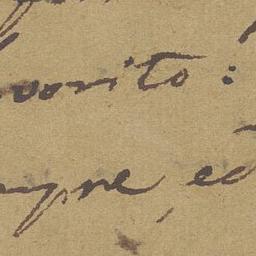 vorito:
mpre, ed